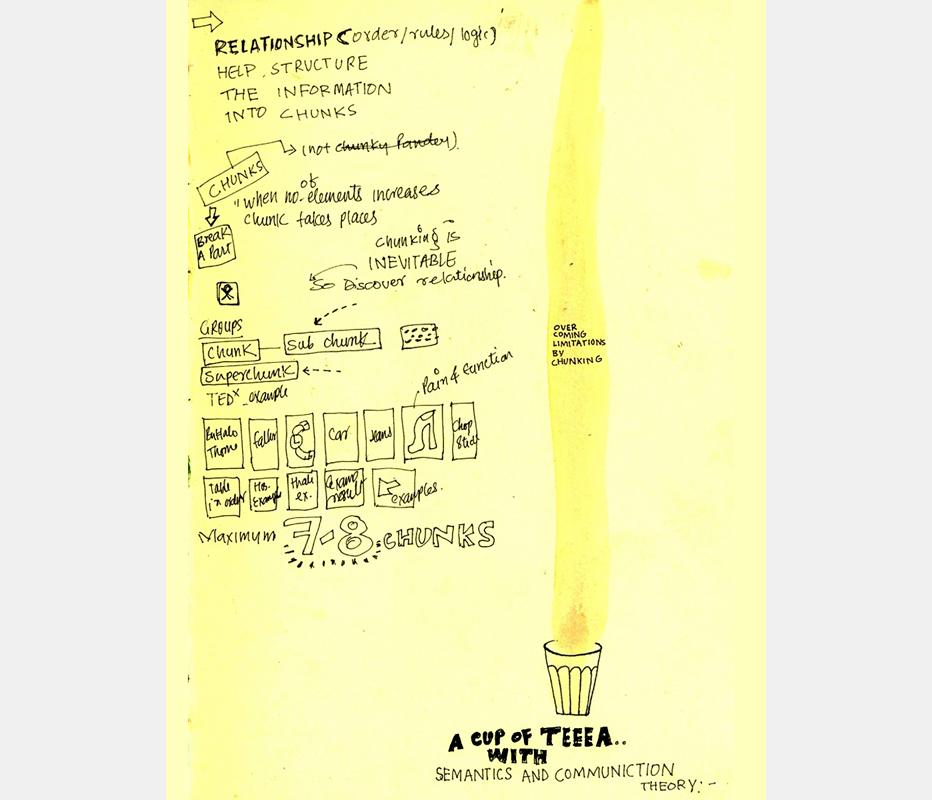 RELATIONSHIP (order/rules/logic)
HELP STRUCTURE
THE INFORMATION
INTO CHUNKS
(not chunky Pandey).
CHUNKS
"when no. of elements increases
chunk takes places
Break
A Part
chunking is
INEVITABLE
So Discover relationship.
GROUPS
Chunk
Sub chunk
Superchunk
TEDx example
Pain & Function
Buffalo
Thorn
Car
Jeans
Chop
Stick
Table
in order
example
thali
ex.
Exam
result
examples.
Maximum 7-8 CHUNKS
OVER
COMING
LIMITATIONS
BY
CHUNKING
A CUP OF TEEEA..
WITH
SEMANTICS AND COMMUNICTION
THEORY:-